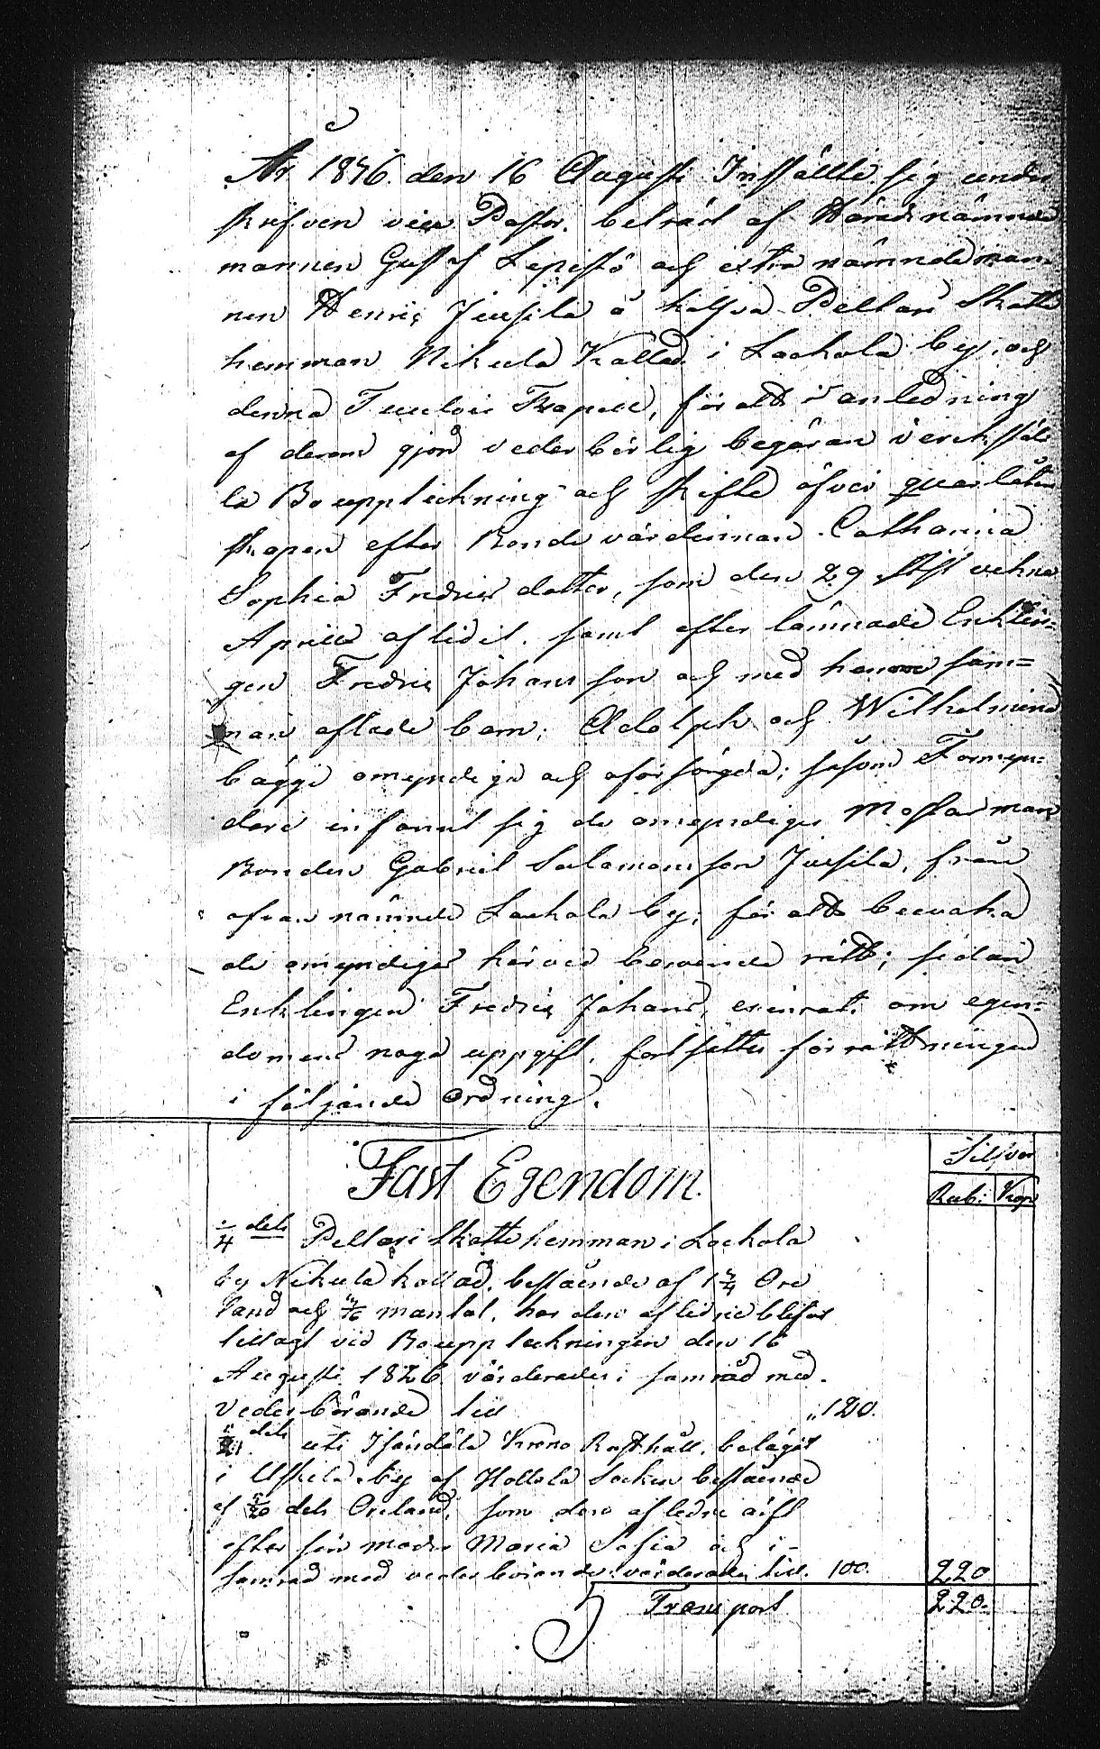 År 1846. den 16 Augusti Inställte sig under
skrifven vice Pastor. beträd af Häradsnämnde
mannen Gustaf Lepistö och extra nämndeman-
nen Henric Jussila å halfva Pellari Skatte
hemman Nikula Kallad i Lackola by, och
denna Socken, för att i anledning
af derom gjord vederbörlig begäran verkstäl-
la Bouppteckning och skifte öfver quarlåten
skapen efter Bonde värdinnan Catharina
Sophia Fredrics dotter, som den 29 sistvekne
Aprill aflidit. samt efter lämnade Enklin-
gen Fredric Johansson och med henne sam-
man aflade barn; Adolph och Wilhelmina
bägge omyndiga och oförsörgda; såsom Förmyn-
dare infann sig de omyndigas Mosters man
Bonden Gabriel Salomonsson Jussila, från
ofvan nämnde Lackola by; för att bevaka
de omyndigas härvid beroende rätt; sedan
Enklingen Fredric Johans, erinrat om egen-
domens noga uppgift, fortsättes förrättningen
i följande Ordning.
Silfver
Fast Egendom.
Rub: Kop
1/4 dels Pellari Skatte hemman i Lackola
by Nikula kallad, bestående af 1 3/4 Öre
land och mantal, har den aflidne blifvit
tillagt vid Bouppteckningen den 16
Augusti 1826 värderades i samråd med
Vederbörande till „ 120.
dels uti Isändälä Krono Rusthåll, belägit
i Uskila by af Hollola Socken bestående
af dels Öreland, som den aflidne ärft
efter sin moder Maria Sofia och i
samråd med vederbörande värderades till. 100. 220
Transport 220.